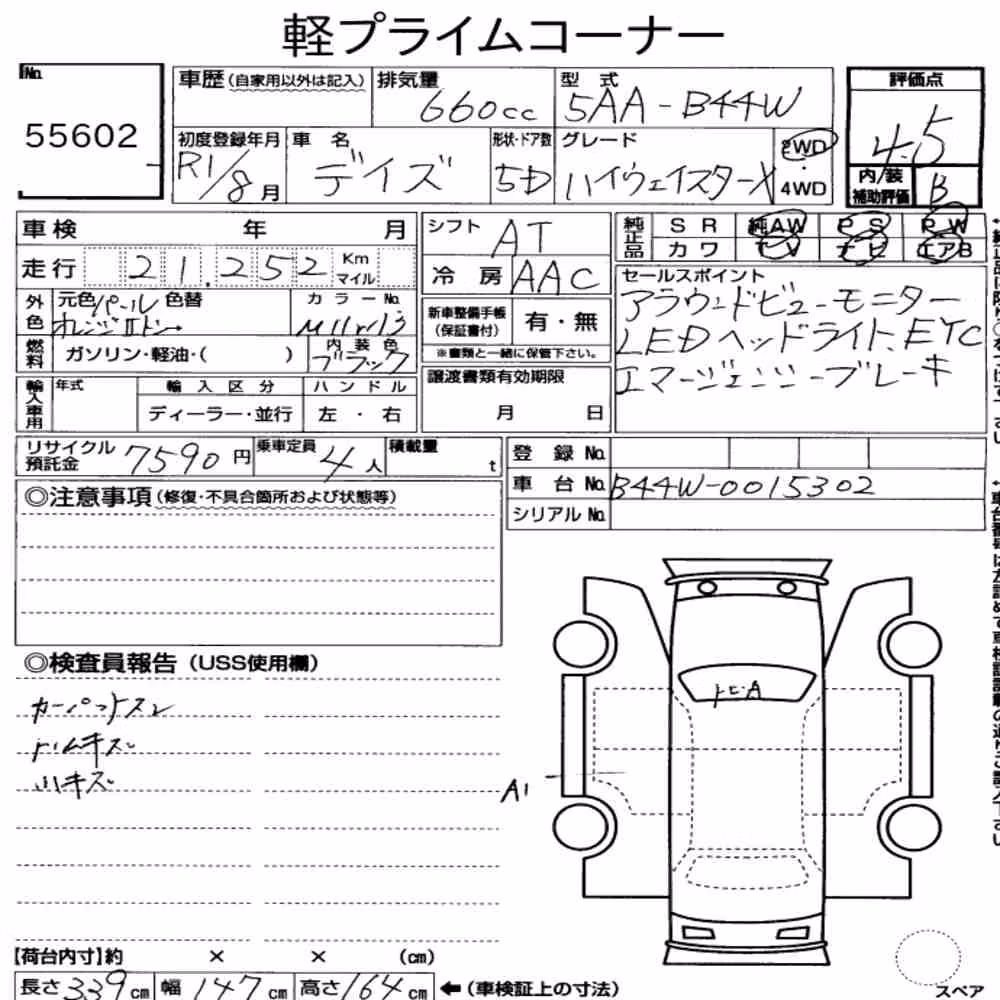 軽プライムコーナー
No.
55602
車歴(自家用以外は記入)
排気量
660cc
型式
5AA-B44W
評価点
4.5
内/装
補助評価
B
初度登録年月
R1/8月
車名
デイズ
形状・ドア数
5D
グレード
ハイウェイスターX
2WD
・
4WD
車検 年 月
走行 21.252 Km
マイル
外色 元色 パール 色替
オレンジⅡトーン
カラーNo.
燃料 ガソリン・軽油・( )
内装色
ブラック
輸入車用 年式 輸入区分 ハンドル
ディーラー・並行 左・右
シフト AT
冷房 AAC
新車整備手帳
(保証書付)
有・無
※書類と一緒に保管下さい。
譲渡書類有効期限
月 日
純正品 SR 純AW PS PW
カワ TV ナビ エアB
セールスポイント
アラウンドビューモニター
LEDヘッドライト、ETC
エマージェンシーブレーキ
リサイクル
預託金 7590円
乗車定員 4人
積載量 t
登録No.
車台No. B44W-0015302
シリアルNo.
◎注意事項(修復・不具合箇所および状態等)
◎検査員報告(USS使用欄)
トムキズ
小キズ
トビA
A1
【荷台内寸】約 × × (cm)
長さ339cm 幅147cm 高さ164cm ←(車検証上の寸法)
スペア